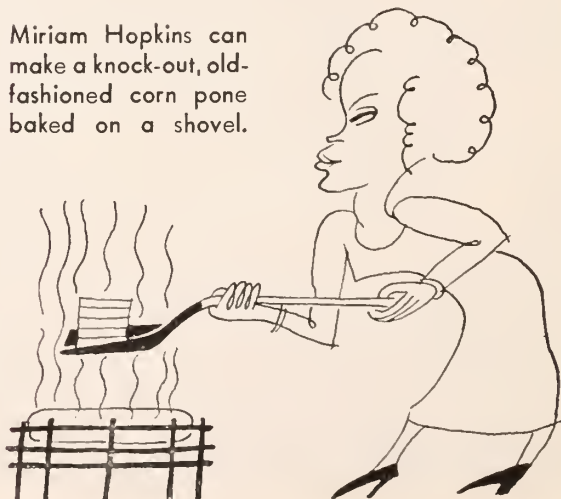 Miriam Hopkins can
make a knock-out, old-
fashioned corn pone
baked on a shovel.